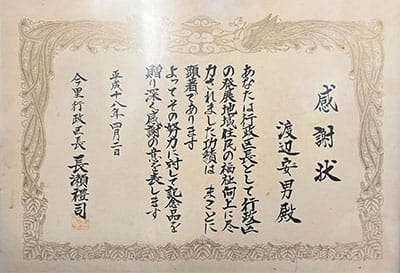 感謝状
渡辺安男殿
あなたは行政区長として行政区
の発展地域住民の福祉向上に尽
力されました功績は まことに
顕著であります
よってその努力に対して記念品を
贈り深く感謝の意を表します
平成十八年四月二日
今里行政区長 長瀬禮司